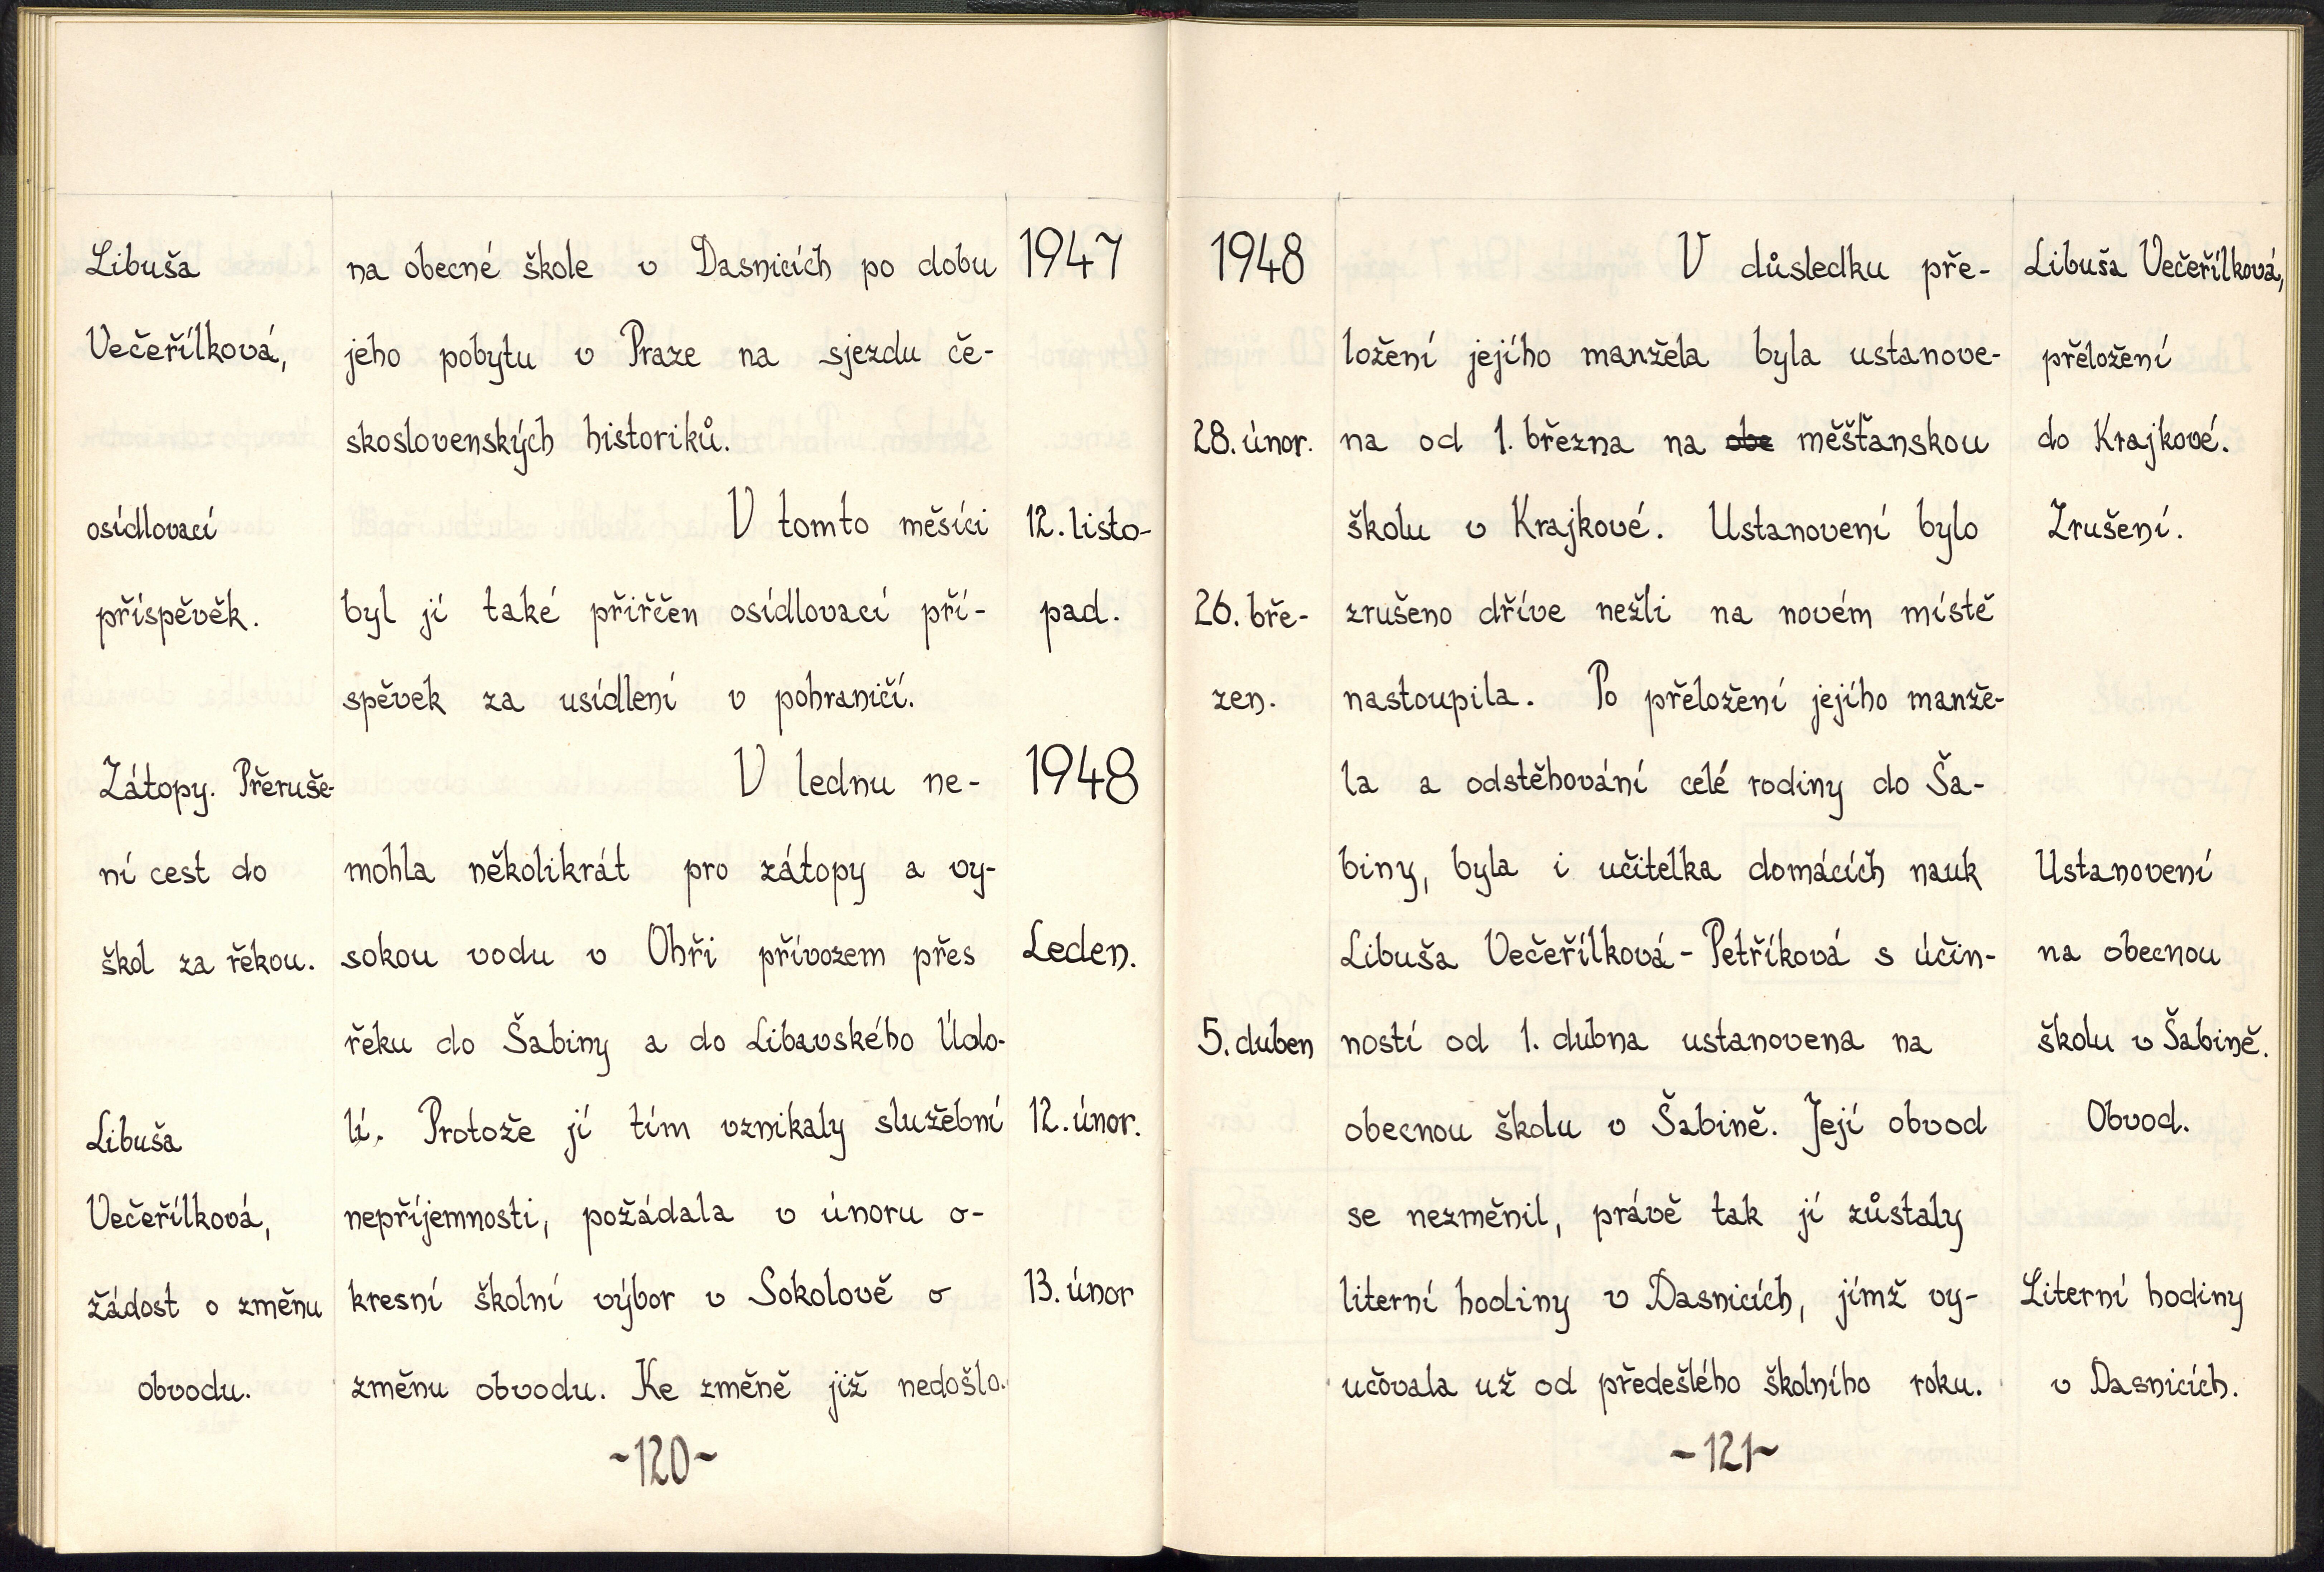 Libuša na obecné škole v Dasnicích po dobu 1947
Večeřílková, jeho pobytu v Praze na sjezdu če-
skoslovenských historiků.
osídlovací V tomto měsíci 12. listo-
příspěvěk. byl jí také přiřčen osídlovací pří- pad.
spěvek za usídlení v pohraničí.
Zátopy. Přeruše- V lednu ne- 1948
ní cest do mohla několikrát pro zátopy a vy-
škol za řekou. sokou vodu v Ohři přívozem přes Leden.
řeku do Šabiny a do Libavského Údo-
Libuša lí. Protože jí tím vznikaly služební 12. únor.
Večeřílková, nepříjemnosti, požádala v únoru o-
žádost o změnu kresní školní výbor v Sokolově o 13. únor
obvodu. změnu obvodu. Ke změně již nedošlo.
~120~
1948 V důsledku pře- Libuša Večeřílková,
ložení jejího manžela byla ustanove- přeložení
28. únor. na od 1. března na obe měšťanskou do Krajkové.
školu v Krajkové. Ustanovení bylo Zrušení.
26. bře- zrušeno dříve nežli na novém místě
zen. nastoupila. Po přeložení jejího manže-
la a odstěhování celé rodiny do Ša-
biny, byla i učitelka domácích nauk Ustanovení
Libuša Večeřílková - Petříková s účin- na obecnou
5. duben ností od 1. dubna ustanovena na školu v Šabině.
obecnou školu v Šabině. Její obvod Obvod.
se nezměnil, právě tak jí zůstaly
literní hodiny v Dasnicích, jímž vy- Literní hodiny
učovala už od předešlého školního roku. v Dasnicích.
~121~